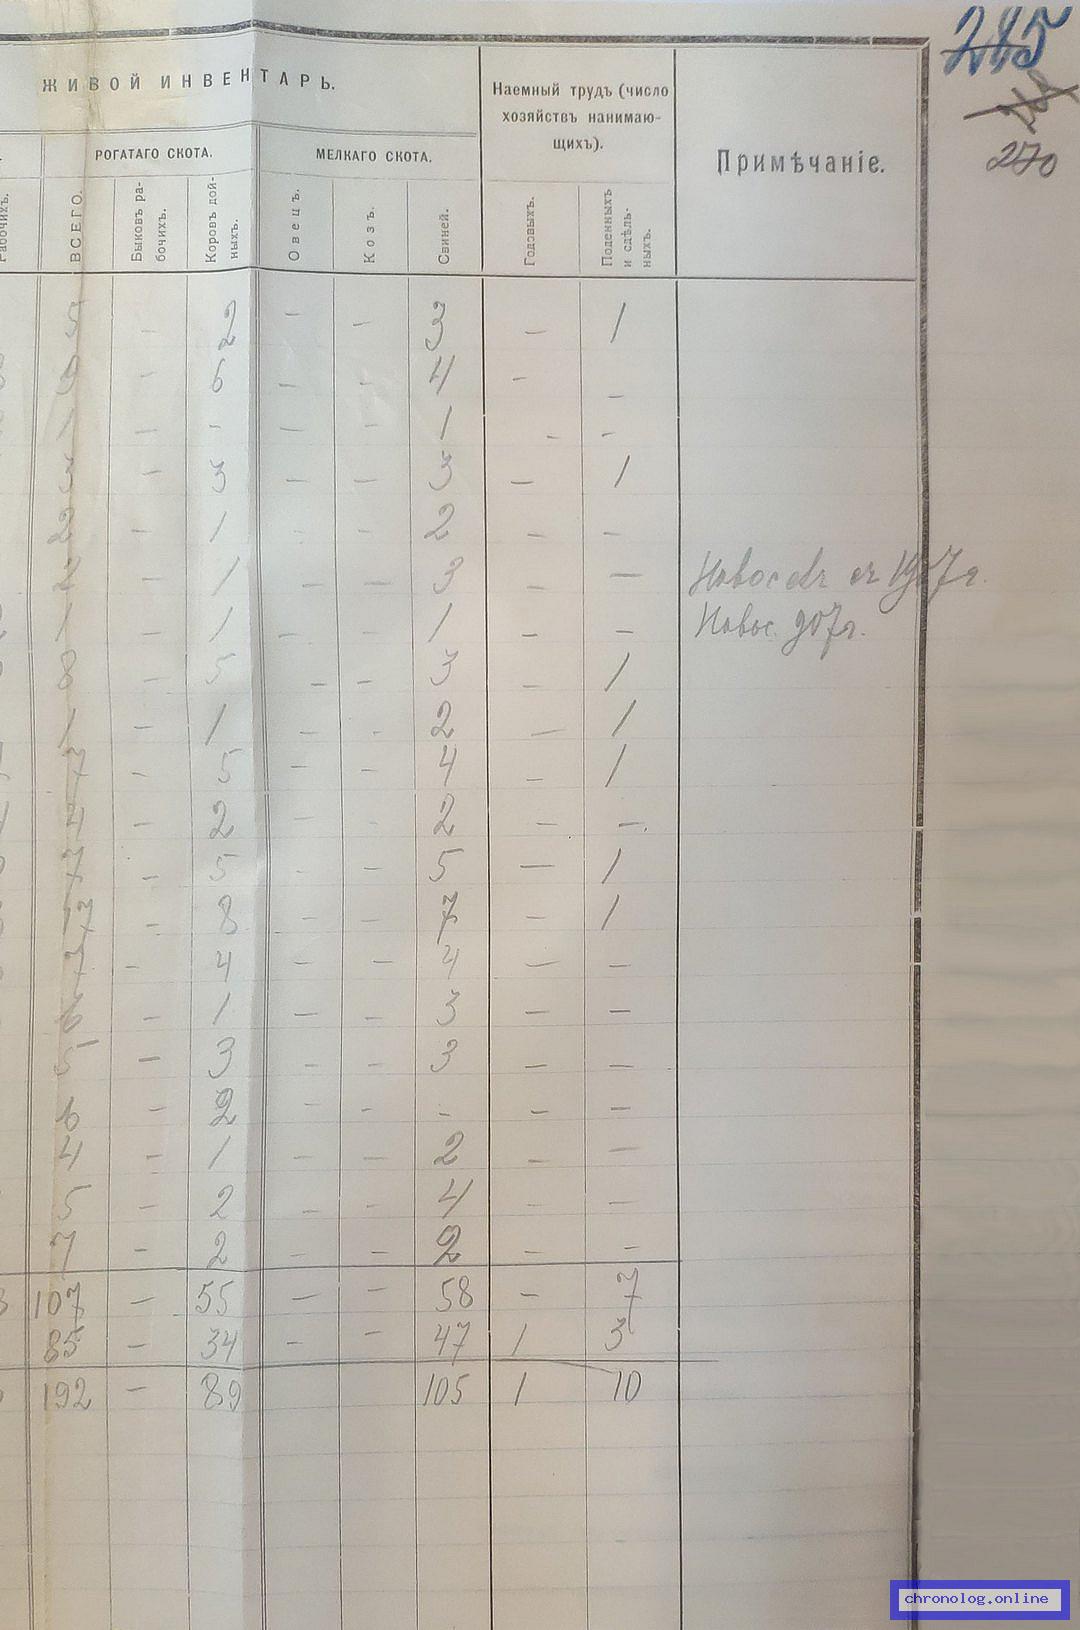 285
270
ЖИВОЙ ИНВЕНТАРЬ.
Наемный трудъ (число
хозяйствъ нанимаю-
щихъ).
Примѣчаніе.
РОГАТАГО СКОТА.
МЕЛКАГО СКОТА.
Рабочихъ.
ВСЕГО.
Быковъ ра-
бочихъ.
Коровъ дой-
ныхъ.
Овецъ.
Козъ.
Свиней.
Годовыхъ.
Поденныхъ
и сдѣль-
ныхъ.
5 - 2 - - 3 - 1
6 - 6 - - 4 - -
1 - - - - 1 - -
3 - 3 - - 3 - 1
2 - 1 - - 2 - -
2 - 1 - - 3 - - Новосел съ 1907 г.
1 - 1 - - 1 - - Новос. 907 г.
8 - 5 - - 3 - 1
1 - 1 - - 2 - 1
7 - 5 - - 4 - 1
4 - 2 - - 2 - -
7 - 5 - - 5 - 1
17 - 8 - - 7 - 1
7 - 4 - - 4 - -
6 - 1 - - 3 - -
5 - 3 - - 3 - -
6 - 2 - - - - -
4 - 1 - - 2 - -
5 - 2 - - 4 - -
7 - 2 - - 2 - -
107 - 55 - - 58 - 7
85 - 34 - - 47 1 3
192 - 89 105 1 10
chronolog.online